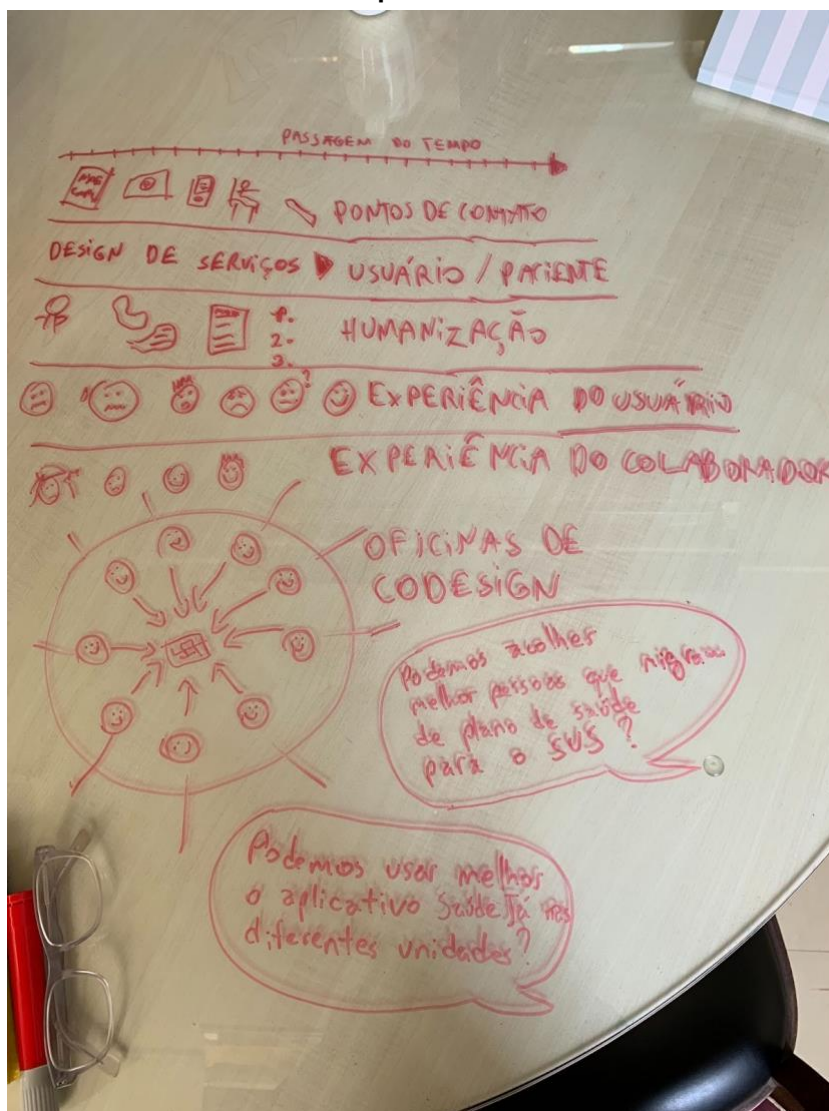 PASSAGEM DO TEMPO
PONTOS DE CONTATO
DESIGN DE SERVIÇOS USUÁRIO / PACIENTE
1.
2.
3.
HUMANIZAÇÃO
? EXPERIÊNCIA DO USUÁRIO
EXPERIÊNCIA DO COLABORADOR
OFICINAS DE
CODESIGN
Podemos acolher
melhor pessoas que migram
de plano de saúde
para o SUS?
Podemos usar melhor
o aplicativo Saúde Já nas
diferentes unidades?